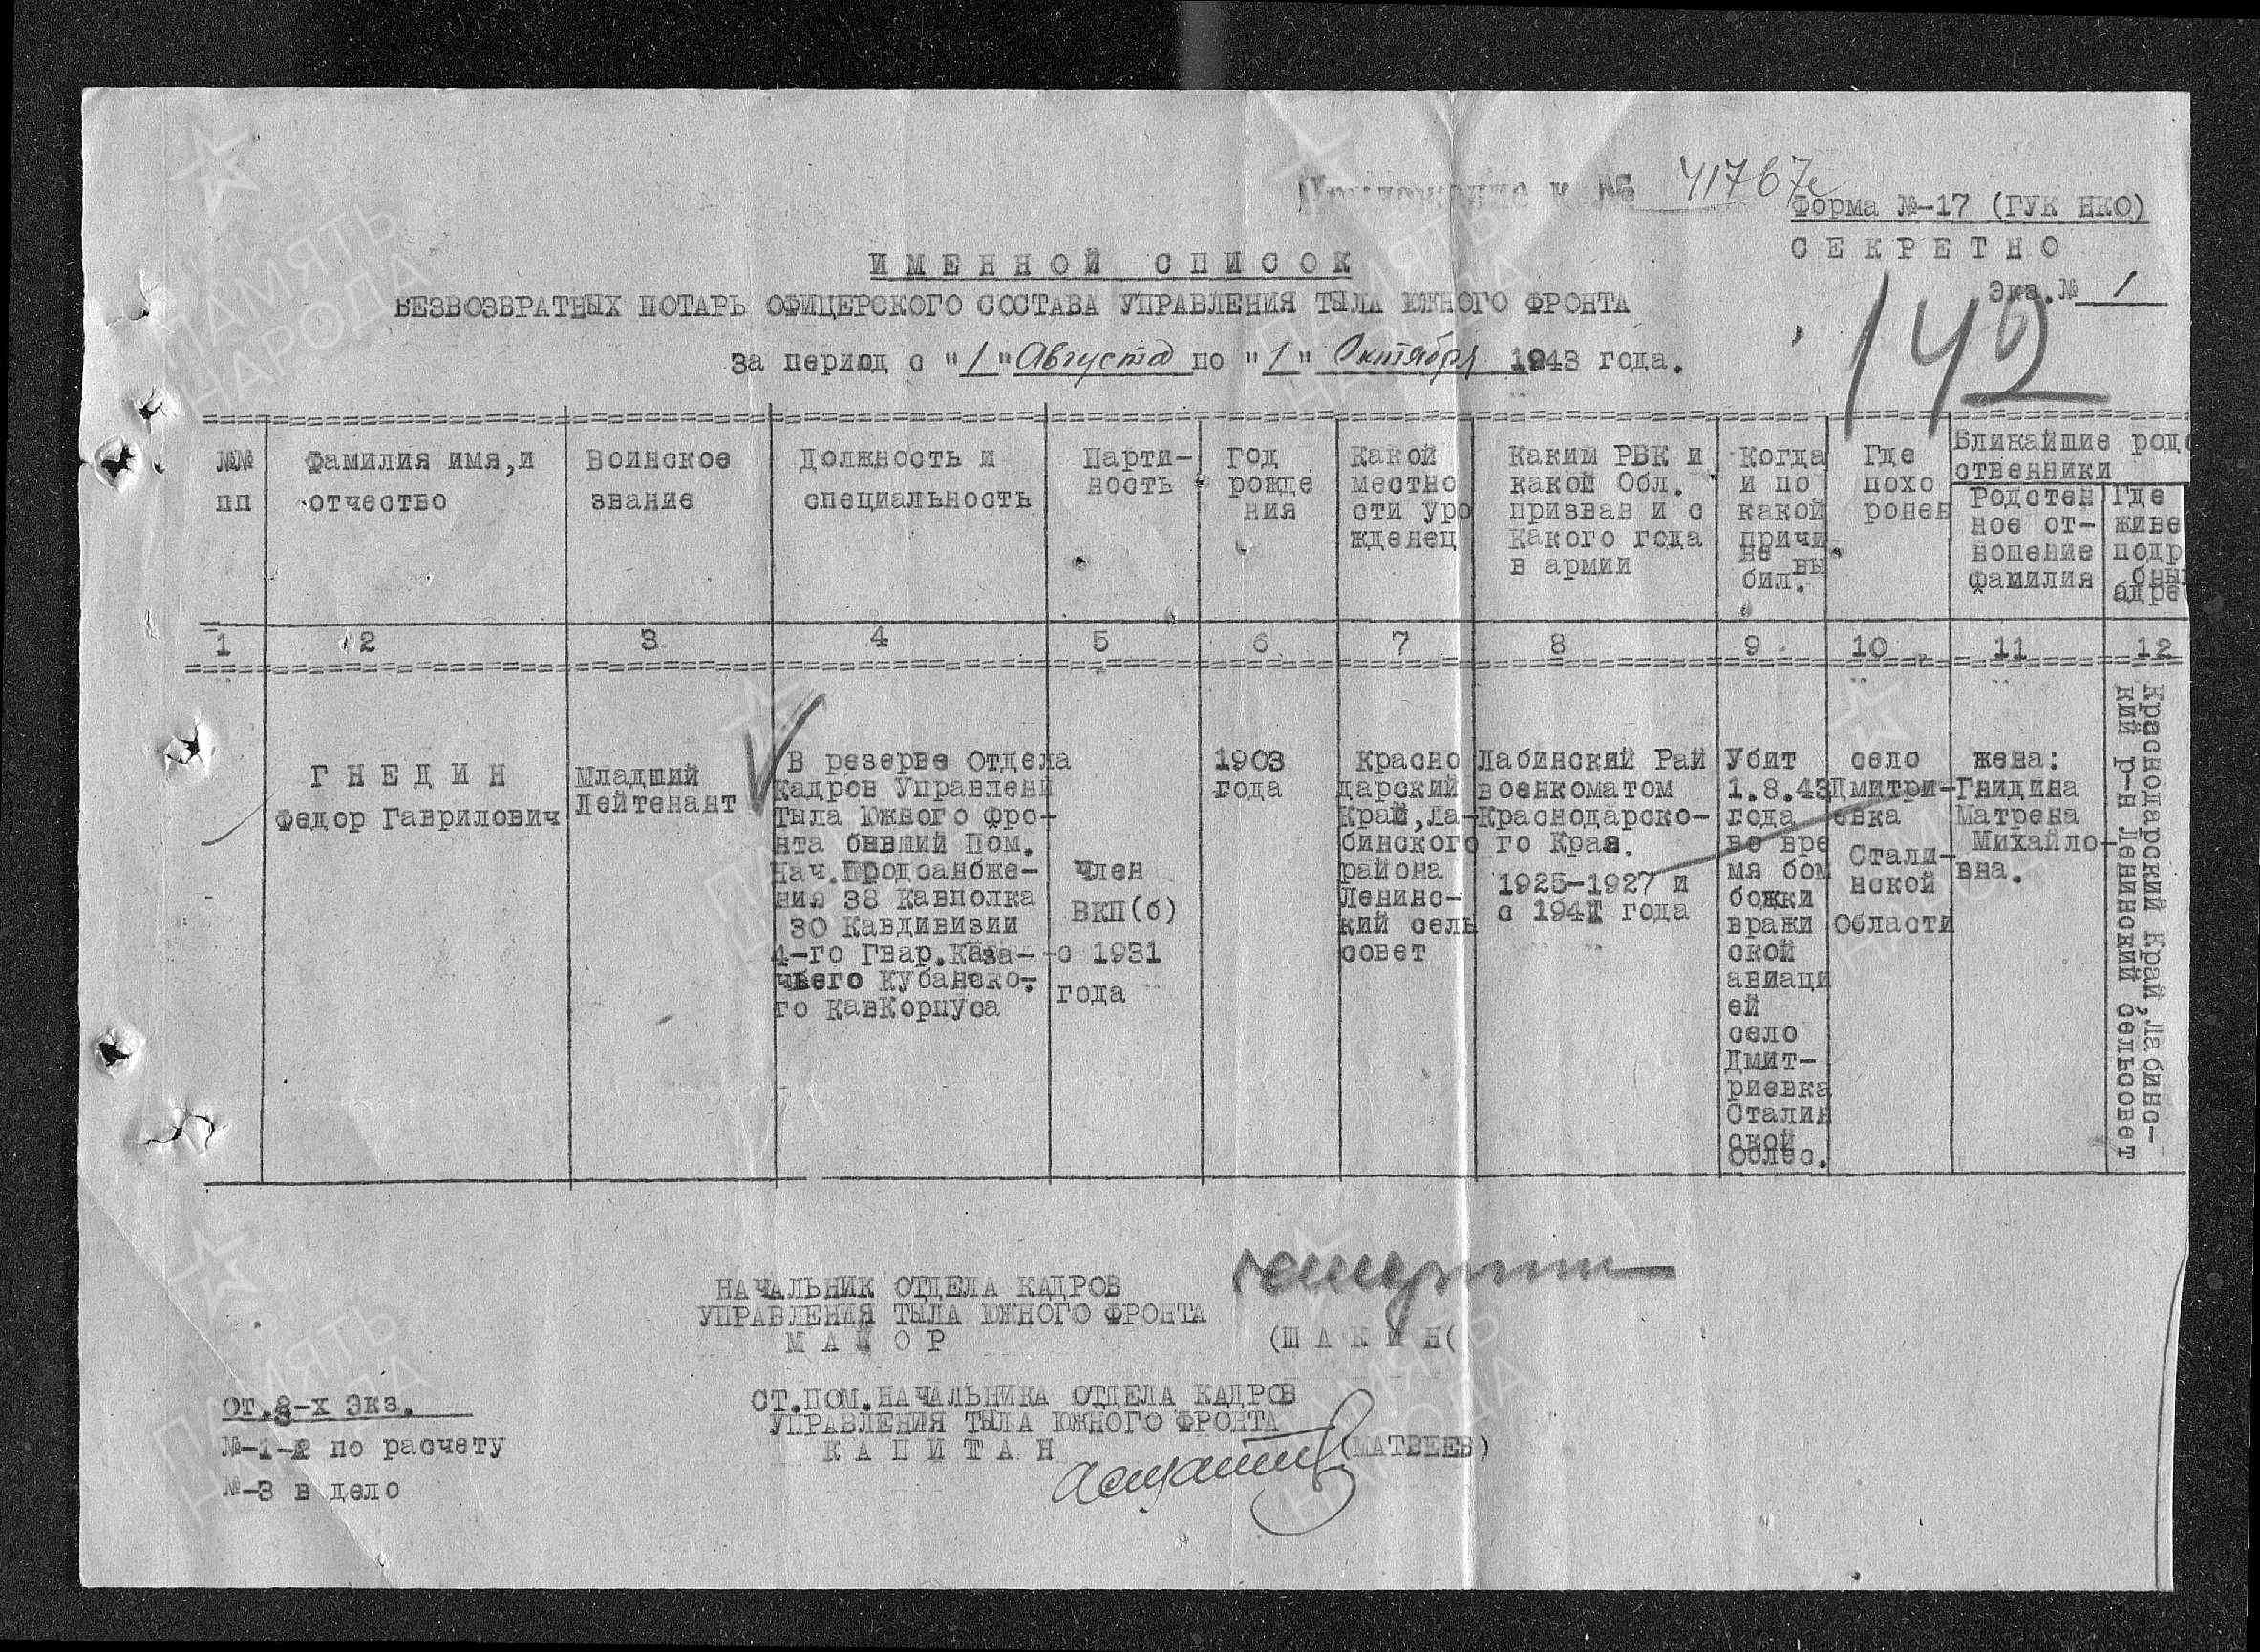 к №
41767с
Форма №-17 (ГУК НКО)
СЕКРЕТНО
Экз.№ 1
142
ИМЕННОЙ СПИСОК
БЕЗВОЗВРАТНЫХ ПОТАРЬ ОФИЦЕРСКОГО СОСТАВА УПРАВЛЕНИЯ ТЫЛА ЮЖНОГО ФРОНТА
за период с "1" Августа по "1" Октября 1943 года.
№№
пп
Фамилия имя, и
отчество
Воинское
звание
Должность и
специальность
Парти-
ность
Год
рожде
ния
Какой
местно
сти уро
жденец
Каким РВК и
какой Обл.
призван и с
какого года
в армии
Когда
и по
какой
причи-
не вы
бил.
Где
похо
ронен
Ближайшие родс
ственники
Родствен
ное от-
ношение
фамилия
Где
живе
подр
бны
адрес
1 2 3 4 5 6 7 8 9 10 11 12
ГНЕДИН
Федор Гаврилович
Младший
Лейтенант
В резерве Отдела
Кадров Управлени
Тыла Южного Фро-
нта бывший Пом.
Нач.Продсанбже-
ния 38 Кавполка
30 Кавдивизии
4-го Гвар.Каза-
чьего Кубанско-
го КавКорпуса
Член
ВКП(б)
с 1931
года
1903
года
Красно
дарский
Край,Ла-
бинского
района
Ленинс-
кий сель
совет
Лабинский Рай
военкоматом
Краснодарско-
го Края.
1925-1927 и
с 1941 года
Убит
1.8.43
года
во вре
мя бом
божки
вражи
ской
авиаци
ей
село
Дмит-
риевка
Сталин
ской
Облас.
село
Дмитри-
евка
Стали-
нской
Области
жена:
Гнидина
Матрена
Михайло-
вна.
Краснодарский Край, Лабинс-
кий р-н Ленинский сельсовет
НАЧАЛЬНИК ОТДЕЛА КАДРОВ
УПРАВЛЕНИЯ ТЫЛА ЮЖНОГО ФРОНТА
МАЙОР
(ШАКИН(
СТ.ПОМ.НАЧАЛЬНИКА ОТДЕЛА КАДРОВ
УПРАВЛЕНИЯ ТЫЛА ЮЖНОГО ФРОНТА
КАПИТАН
(МАТВЕЕВ)
от.3-х Экз.
№-1-2 по расчету
№-3 в дело
ПАМЯТЬ
НАРОДА